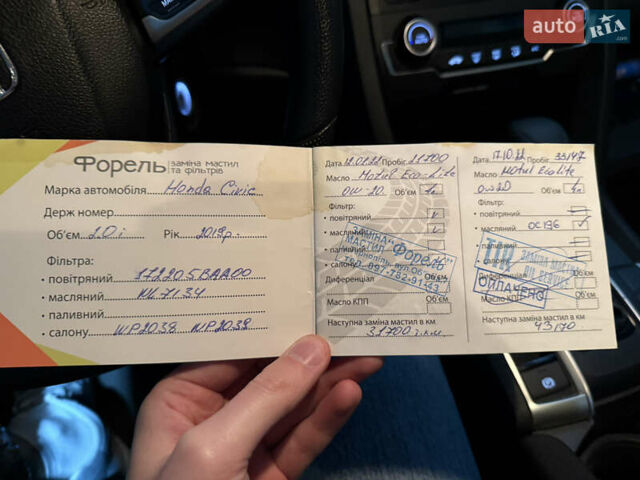 auto RIA
.com
Форель заміна мастил
та фільтрів
Марка автомобіля Honda Civic
Держ номер
Об'єм 2.0 i Рік 2019р.
Фільтра:
• повітряний 17220.5BAA00
• масляний
• паливний
• салону WP2038 WP2038
Дата 12.01.22 Пробіг 21700
Масло Motul Eco-Lite
0W-20 Об'єм
Фільтр:
• повітряний
• масляний
• паливний
• салону
Диференціал Об'єм
Масло КПП Об'єм
Наступна заміна мастил в км
31700
ЗАМІНА МАСТИЛ "Форель"
Дата 17.10.22 Пробіг 33147
Масло Motul EcoLite
0w20 Об'єм 4л
Фільтр:
• повітряний
• масляний OC196
• паливний
• салону
Диференціал
Масло КПП Об'єм
Наступна заміна мастил в км
43170
ЗАМІНА МАСТИЛ
ОПЛАЧЕНО